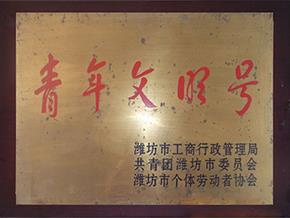 青年文明号
潍坊市工商行政管理局
共青团潍坊市委员会
潍坊市个体劳动者协会